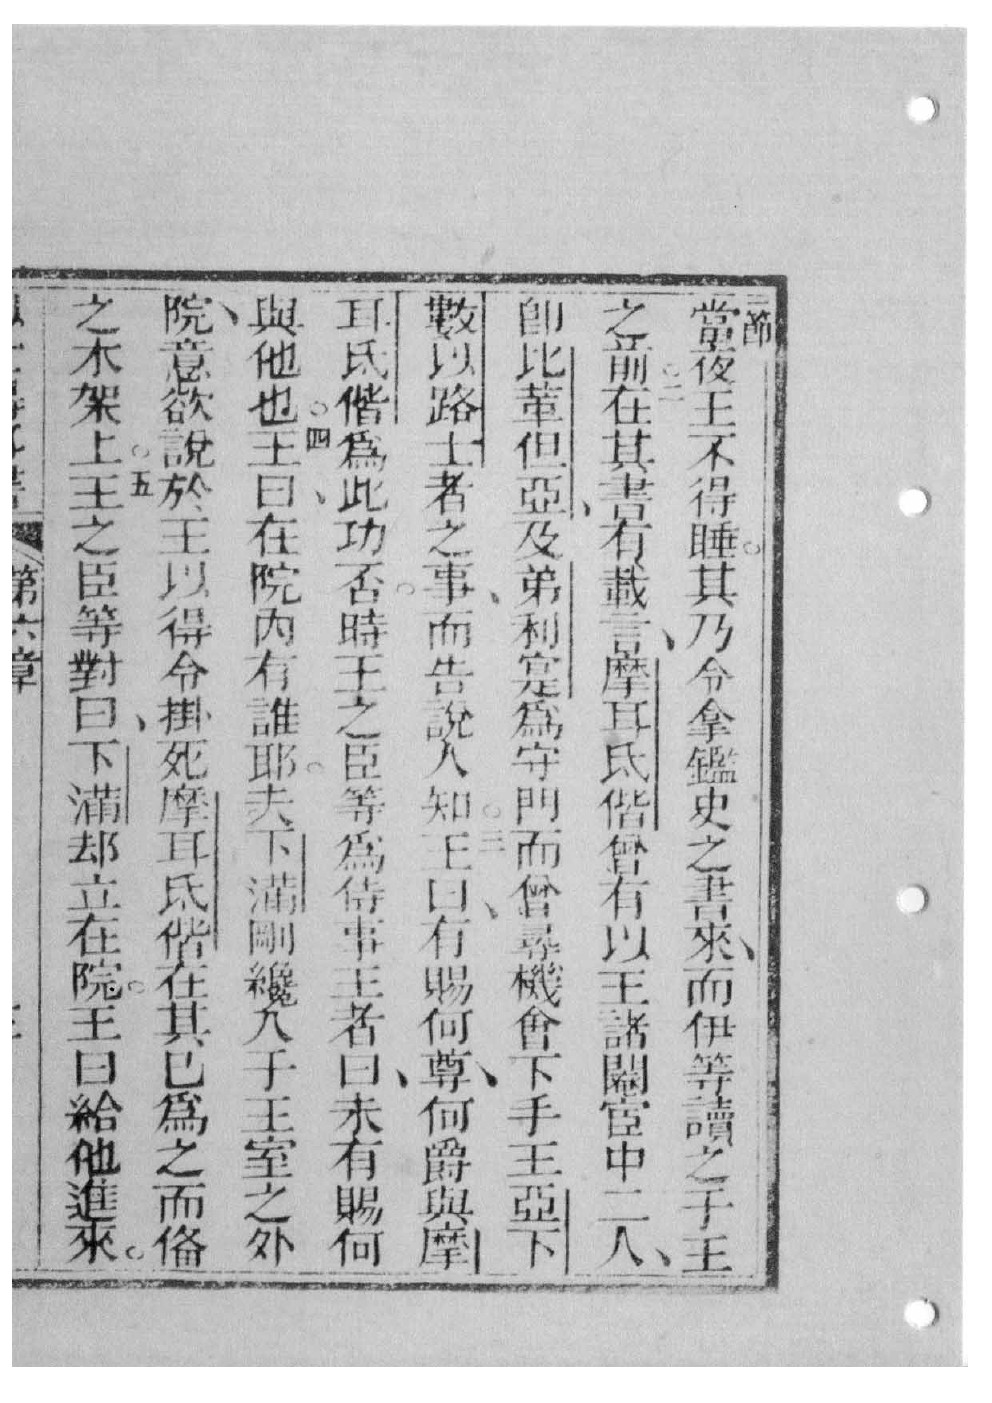 一節當夜王不得睡。其乃令拿鑑史之書來、而伊等讀之于王
之前。二在其書有載言、摩耳氐偕曾有以王諸閹宦中二人、
卽比革但亞、及弟利寔爲守門而曾尋機會下手王亞下
數以路士者之事、而告說人知。三王曰、有賜何尊、何爵與摩
耳氐偕爲此功否。時王之臣等爲侍事王者曰、未有賜何
與他也。四王曰、在院內有誰耶。夫下滿剛纔入于王室之外
院、意欲說於王以得令掛死摩耳氐偕在其已爲之而俻
之木架上。五王之臣等對曰、下滿却立在院。王曰給他進來。
第六章